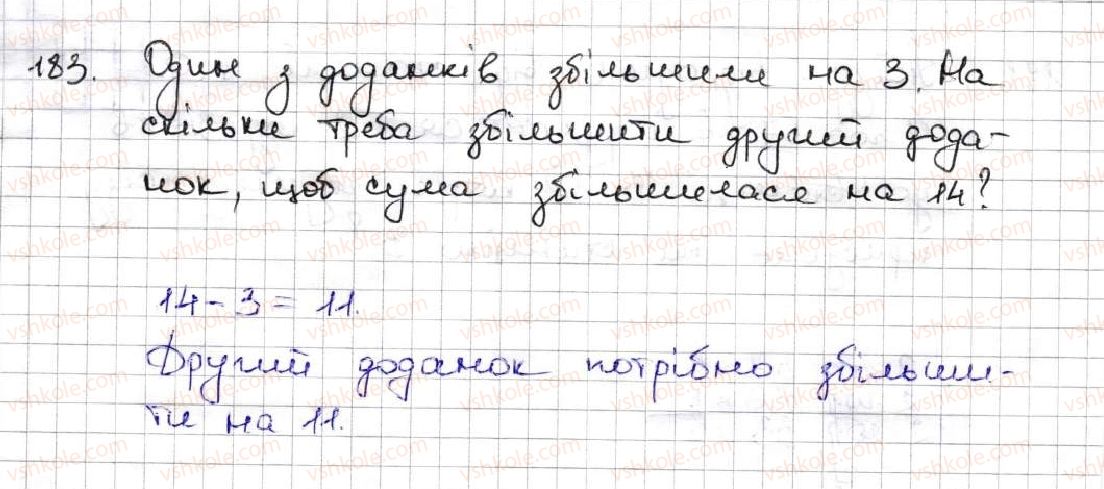 183. Один з доданків збільшили на 3. На
скільки треба збільшити другий дода-
нок, щоб сума збільшилася на 14?
14 - 3 = 11.
Другий доданок потрібно збільши-
ти на 11.
vshkole.com